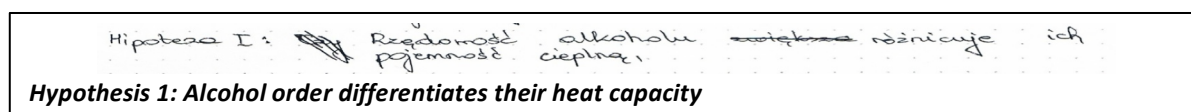 Hipoteza I: Rzędowość alkoholu zwiększa różnicuje ich
pojemność cieplną,
Hypothesis 1: Alcohol order differentiates their heat capacity